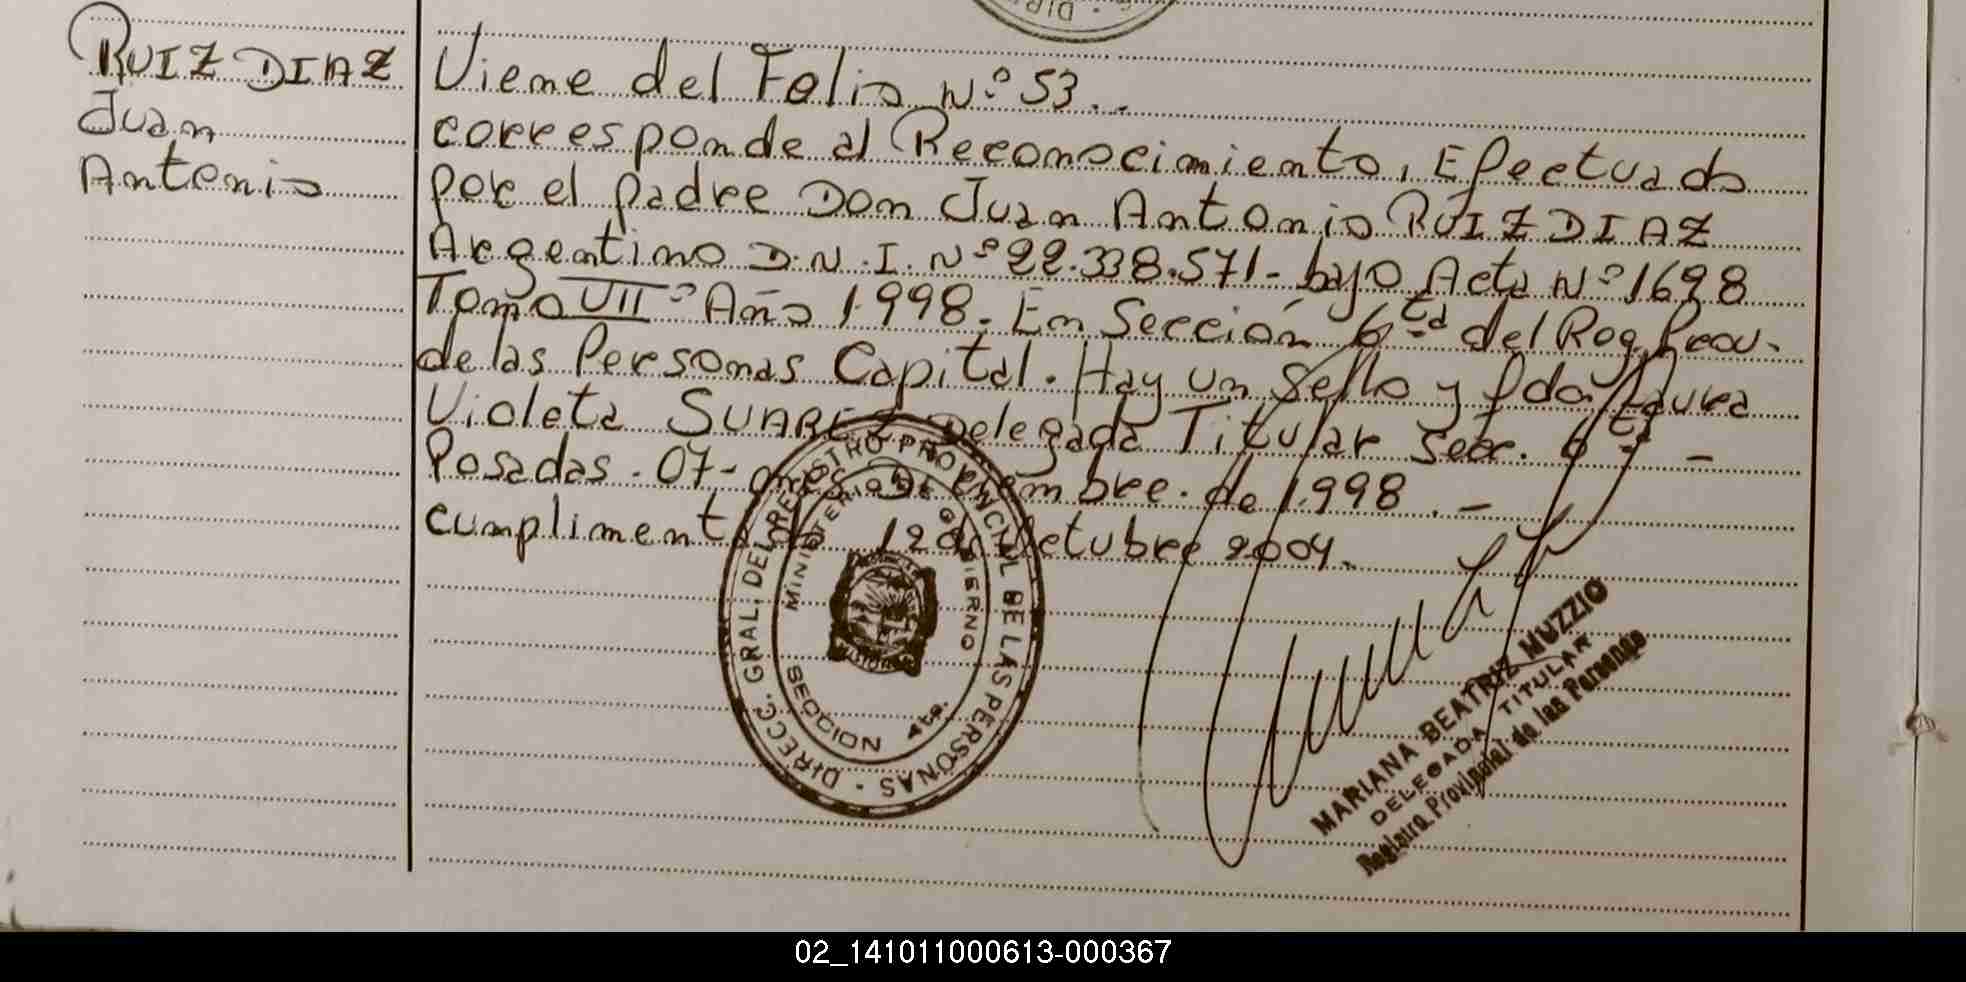 RUIZ DIAZ
Juan
Antonio
Viene del Folio Nº 53..
corresponde al Reconocimiento, Efectuado
por el padre Don Juan Antonio RUIZ DIAZ
Argentino D.N.I. Nº 22.338.571- bajo Acta Nº 1698
Tomo VII º Año 1.998. En Sección 6ta del Reg. Prov.
de las Personas Capital. Hay un Sello y fdo. Laura
Violeta SUAREZ Delegada Titular Secc. 6ta -
Posadas. 07- de 1.998. -
cumplimentado 12 de Octubre 2004.
DIRECC. GRAL. DEL REGISTRO PROVINCIAL DE LAS PERSONAS
MINISTERIO DE GOBIERNO
SECCION 4ta.
MARIANA BEATRIZ MUZZIO
DELEGADA TITULAR
Registro Provincial de las Personas
02_141011000613-000367